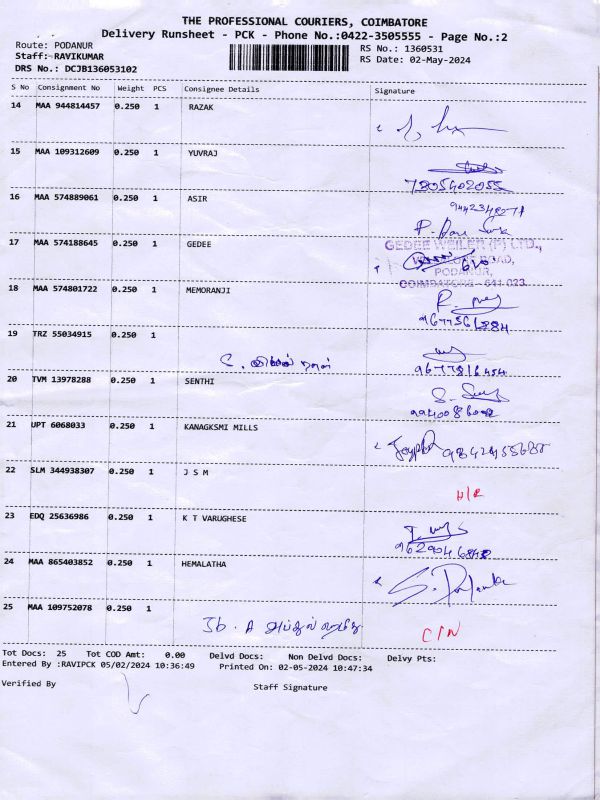 THE PROFESSIONAL COURIERS, COIMBATORE
Delivery Runsheet - PCK - Phone No.:0422-3505555 - Page No.:2
Route: PODANUR
RS No.: 1360531
Staff: RAVIKUMAR
RS Date: 02-May-2024
DRS No.: DCJB136053102
S No Consignment No Weight PCS Consignee Details Signature
14 MAA 944814457 0.250 1 RAZAK
15 MAA 109312609 0.250 1 YUVRAJ
7805402055
16 MAA 574889061 0.250 1 ASIR
17 MAA 574188645 0.250 1 GEDEE
GEDEE WEILER (P) LTD.,
ROAD,
PODANUR,
COIMBATORE - 641 023.
18 MAA 574801722 0.250 1 MEMORANJI
19 TRZ 55034915 0.250 1
9677816454
20 TVM 13978288 0.250 1 SENTHI
21 UPT 6068033 0.250 1 KANAGKSMI MILLS
22 SLM 344938307 0.250 1 J S M
23 EDQ 25636986 0.250 1 K T VARUGHESE
24 MAA 865403852 0.250 1 HEMALATHA
25 MAA 109752078 0.250 1
Tot Docs: 25 Tot COD Amt: 0.00 Delvd Docs: Non Delvd Docs: Delvy Pts:
Entered By :RAVIPCK 05/02/2024 10:36:49 Printed On: 02-05-2024 10:47:34
Verified By
Staff Signature